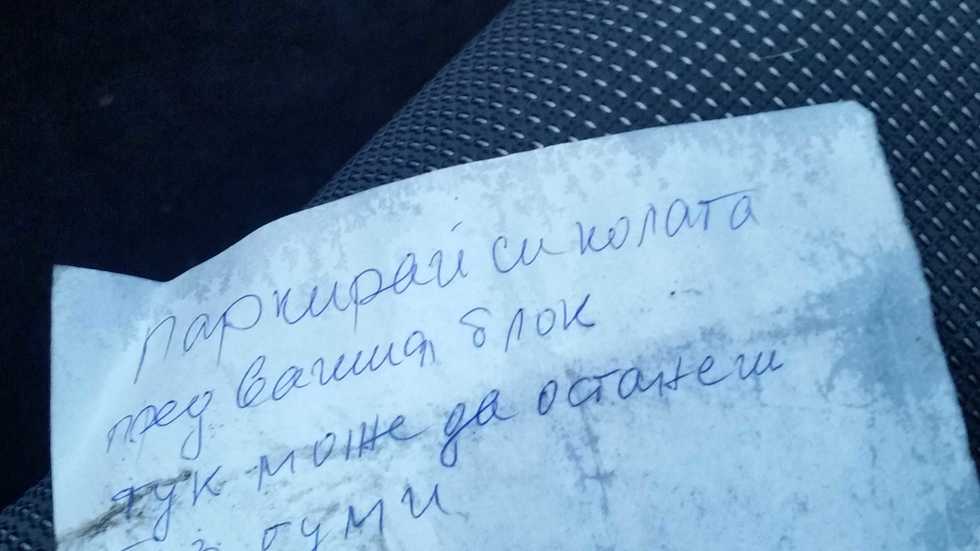 Паркирай си колата
пред вашия блок
тук може да останеш
без гуми